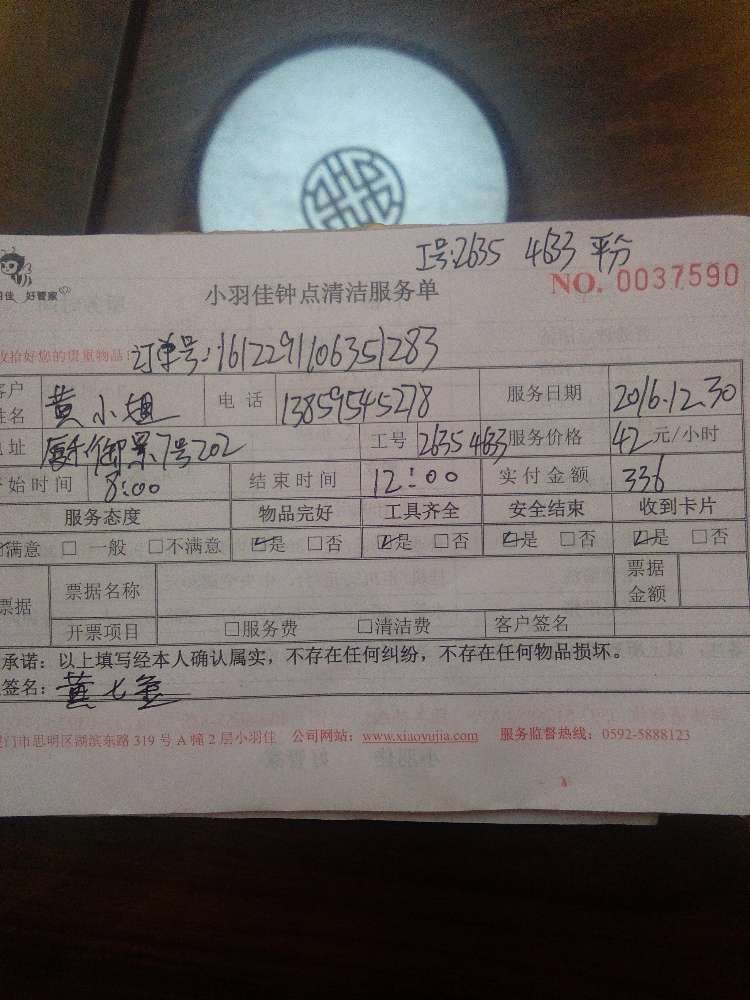 工号:2635 4633 平分
羽佳 好管家
小羽佳钟点清洁服务单
NO. 0037590
收拾好您的贵重物品!
订单号:1612291106351283
客户姓名 黄小姐 电话 13859545278 服务日期 2016.12.30
地址 御景7号202 工号 2635 4633 服务价格 42元/小时
开始时间 8:00 结束时间 12:00 实付金额 336
服务态度 物品完好 工具齐全 安全结束 收到卡片
满意 □ 一般 □不满意 ☑是 □否 ☑是 □否 ☑是 □否 ☑是 □否
票据 票据名称 票据金额
开票项目 □服务费 □清洁费 客户签名
承诺:以上填写经本人确认属实,不存在任何纠纷,不存在任何物品损坏。
签名:黄
门市思明区湖滨东路 319 号 A 幢 2 层小羽佳 公司网站:www.xiaoyujia.com 服务监督热线:0592-5888123